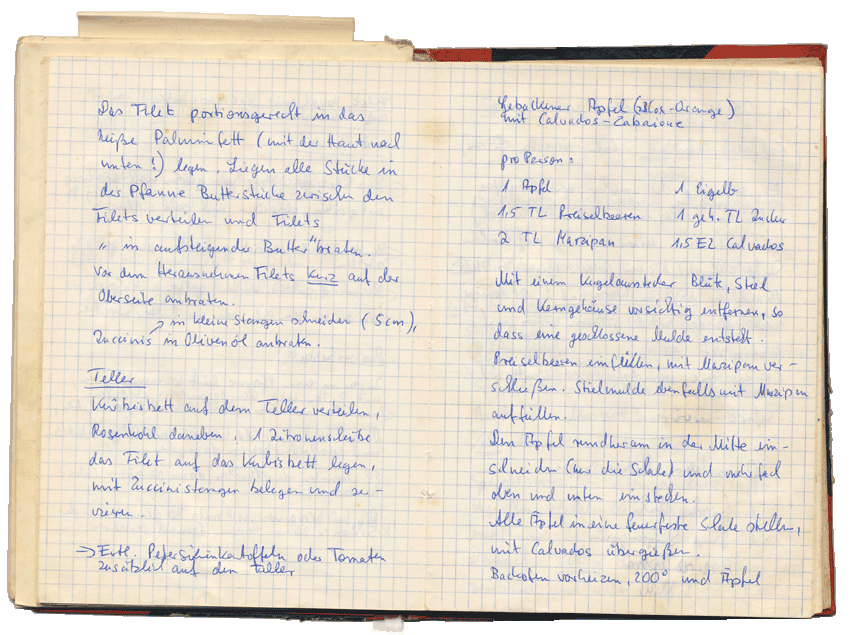 Das Filet portionsgerecht in das
heiße Palminfett (mit der Haut nach
unten!) legen. Liegen alle Stücke in
der Pfanne Butterstücke zwischen den
Filets verteilen und Filets
"in aufsteigender Butter" braten.
Vor dem Herausnehmen Filets kurz auf der
Oberseite anbraten.
in kleine Stangen schneiden (5cm),
Zuccinis in Olivenöl anbraten.
Teller
Kürbisbett auf dem Teller verteilen,
Rosenkohl daneben, 1 Zitronenscheibe
das Filet auf das Kürbisbett legen,
mit Zuccinistangen belegen und ser-
vieren.
→ Evtl. Petersilienkartoffeln oder Tomaten
zusätzlich auf den Teller
Gebackener Apfel (Cox-Orange)
mit Calvados-Zabaione
pro Person:
1 Apfel 1 Eigelb
1,5 TL Preiselbeeren 1 geh. TL Zucker
2 TL Marzipan 1,5 EL Calvados
Mit einem Kugelausstecher Blüte, Stiel
und Kerngehäuse vorsichtig entfernen, so
dass eine geschlossene Mulde entsteht.
Preiselbeeren einfüllen, mit Marzipan ver-
schließen. Stielmulde ebenfalls mit Marzipan
auffüllen.
Den Apfel rundherum in der Mitte ein-
schneiden (nur die Schale) und mehrfach
oben und unten einstechen.
Alle Äpfel in eine feuerfeste Schale stellen,
mit Calvados übergießen.
Backofen vorheizen, 200° und Äpfel